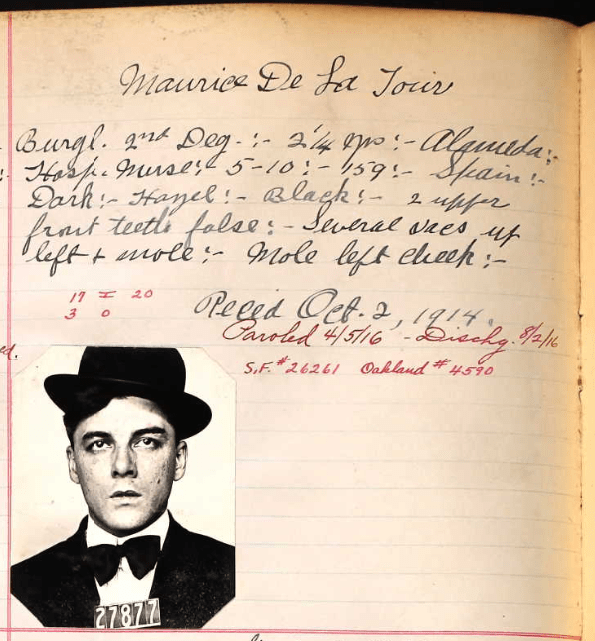 Maurice De La Tour
Burgl. 2nd Deg. :- 2 1/4 yrs :- Alameda :-
Hosp. Nurse :- 5-10 :- 159 :- Spain :-
Dark :- Hazel :- Black :- 2 upper
front teeth false :- Several vacs up
left + mole :- Mole left cheek :-
17 I 20
3 0
Recd Oct. 2, 1914.
Paroled 4/5/16 - Dischg. 8/2/16
ed.
S.F. # 26261 Oakland # 4590
27877